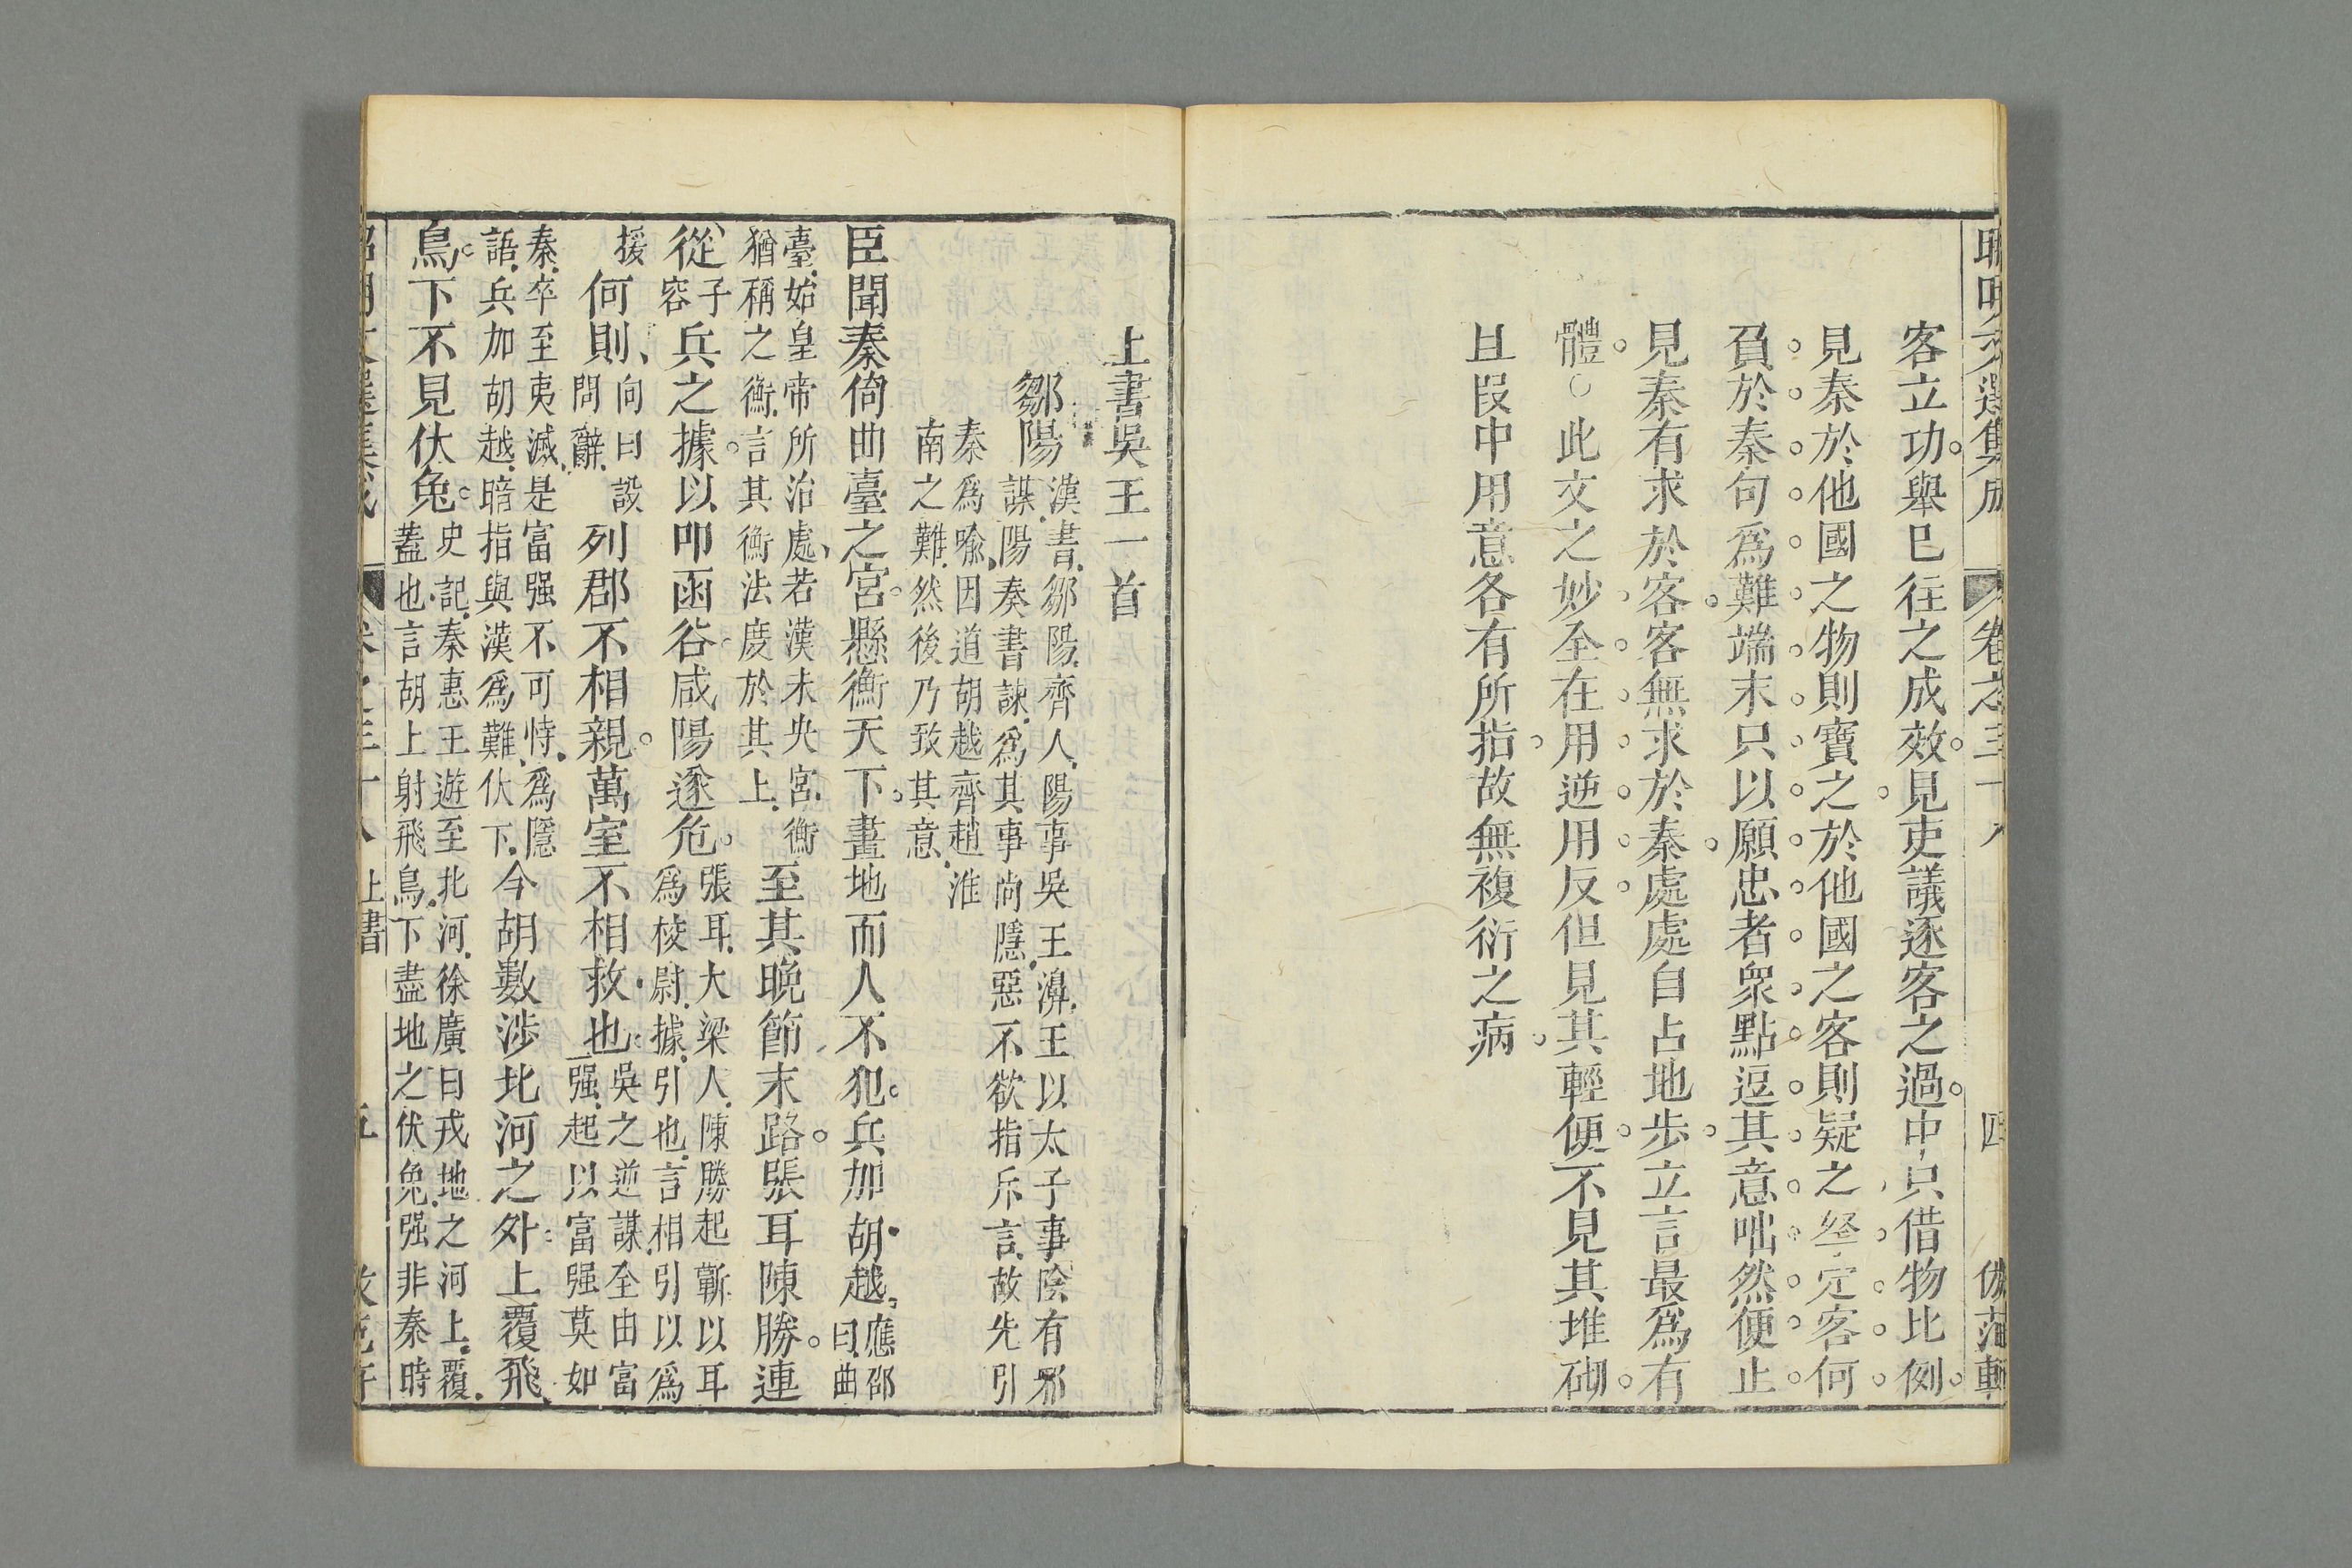 昭明文選集成 卷之三十八 四 倣范軒
客立功舉已往之成效見吏議逐客之過中只借物比例
見秦於他國之物則寶之於他國之客則疑之坐定客何
負於秦句為難端末只以願忠者衆點逗其意咄然便止
見秦有求於客客無求於秦處處自占地步立言最為有
體○此文之妙全在用逆用反但見其輕便不見其堆砌
且段中用意各有所指故無複衍之病
上書吳王一首
鄒陽
漢書鄒陽齊人陽事吳王濞王以太子事陰有邪
謀陽奏書諫為其事尚隱惡不欲指斥言故先引
秦為喻因道胡越齊趙淮
南之難然後乃致其意
臣聞秦倚曲臺之宮懸衡天下畫地而人不犯兵加胡越
應邵
曰曲
臺始皇帝所治處若漢未央宮衡
猶稱之衡言其衡法度於其上
至其晚節末路張耳陳勝連
從
子
容
兵之據以叩函谷咸陽遂危
張耳大梁人陳勝起蘄以耳
為校尉據引也言相引以為
援
何則
向曰設
問辭
列郡不相親萬室不相救也
吳之逆謀全由富
强起以富强莫如
秦卒至夷滅是富强不可恃為隱
語兵加胡越暗指與漢為難伏下
今胡數涉北河之外上覆飛
鳥下不見伏兔
史記秦惠王遊至北河徐廣曰戎地之河上覆
蓋也言胡上射飛鳥下盡地之伏兔强非秦時
昭明文選集成 卷之三十八 上書 五